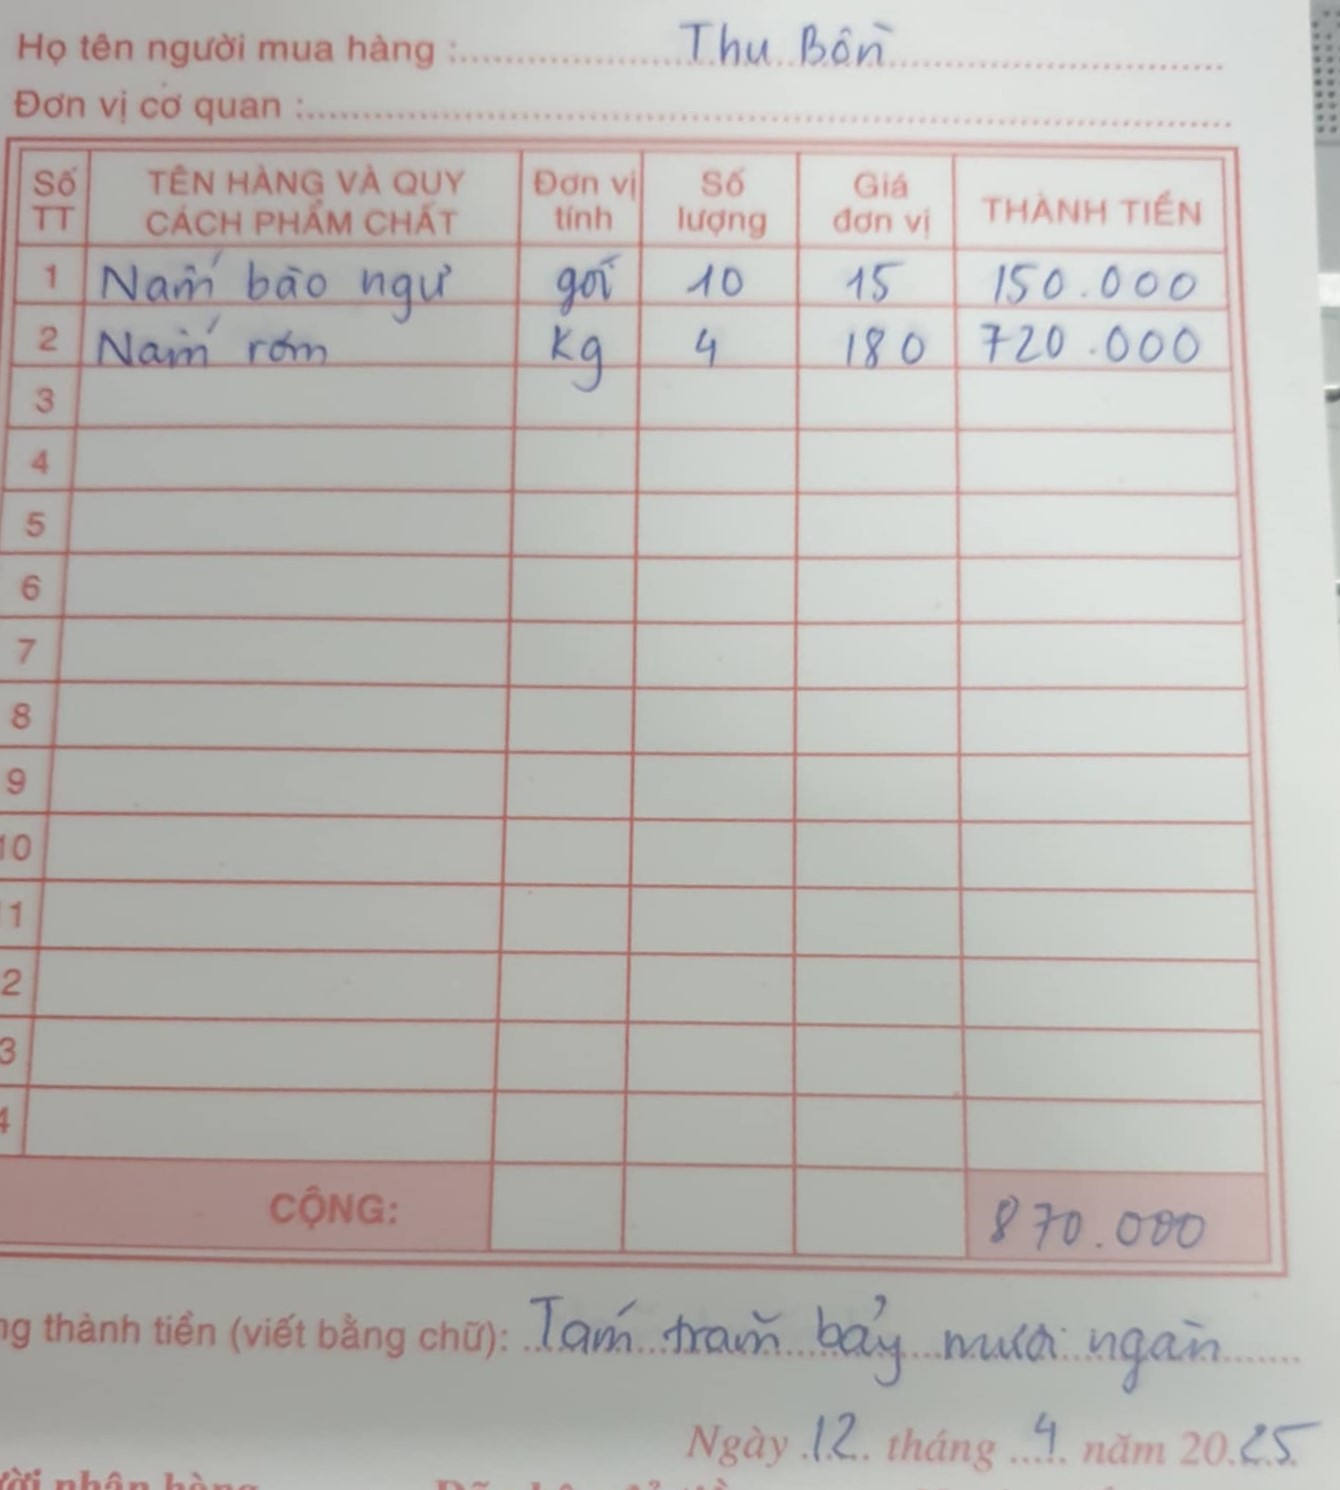 Họ tên người mua hàng : Thu Bồn
Đơn vị cơ quan :
Số TT TÊN HÀNG VÀ QUY CÁCH PHẨM CHẤT Đơn vị tính Số lượng Giá đơn vị THÀNH TIỀN
1 Nấm bào ngư gói 10 15 150.000
2 Nấm rơm Kg 4 180 720.000
3
4
5
6
7
8
9
10
1
2
3
4
CỘNG: 870.000
ng thành tiền (viết bằng chữ): Tám trăm bảy mươi ngàn
Ngày 12 tháng 4 năm 2025